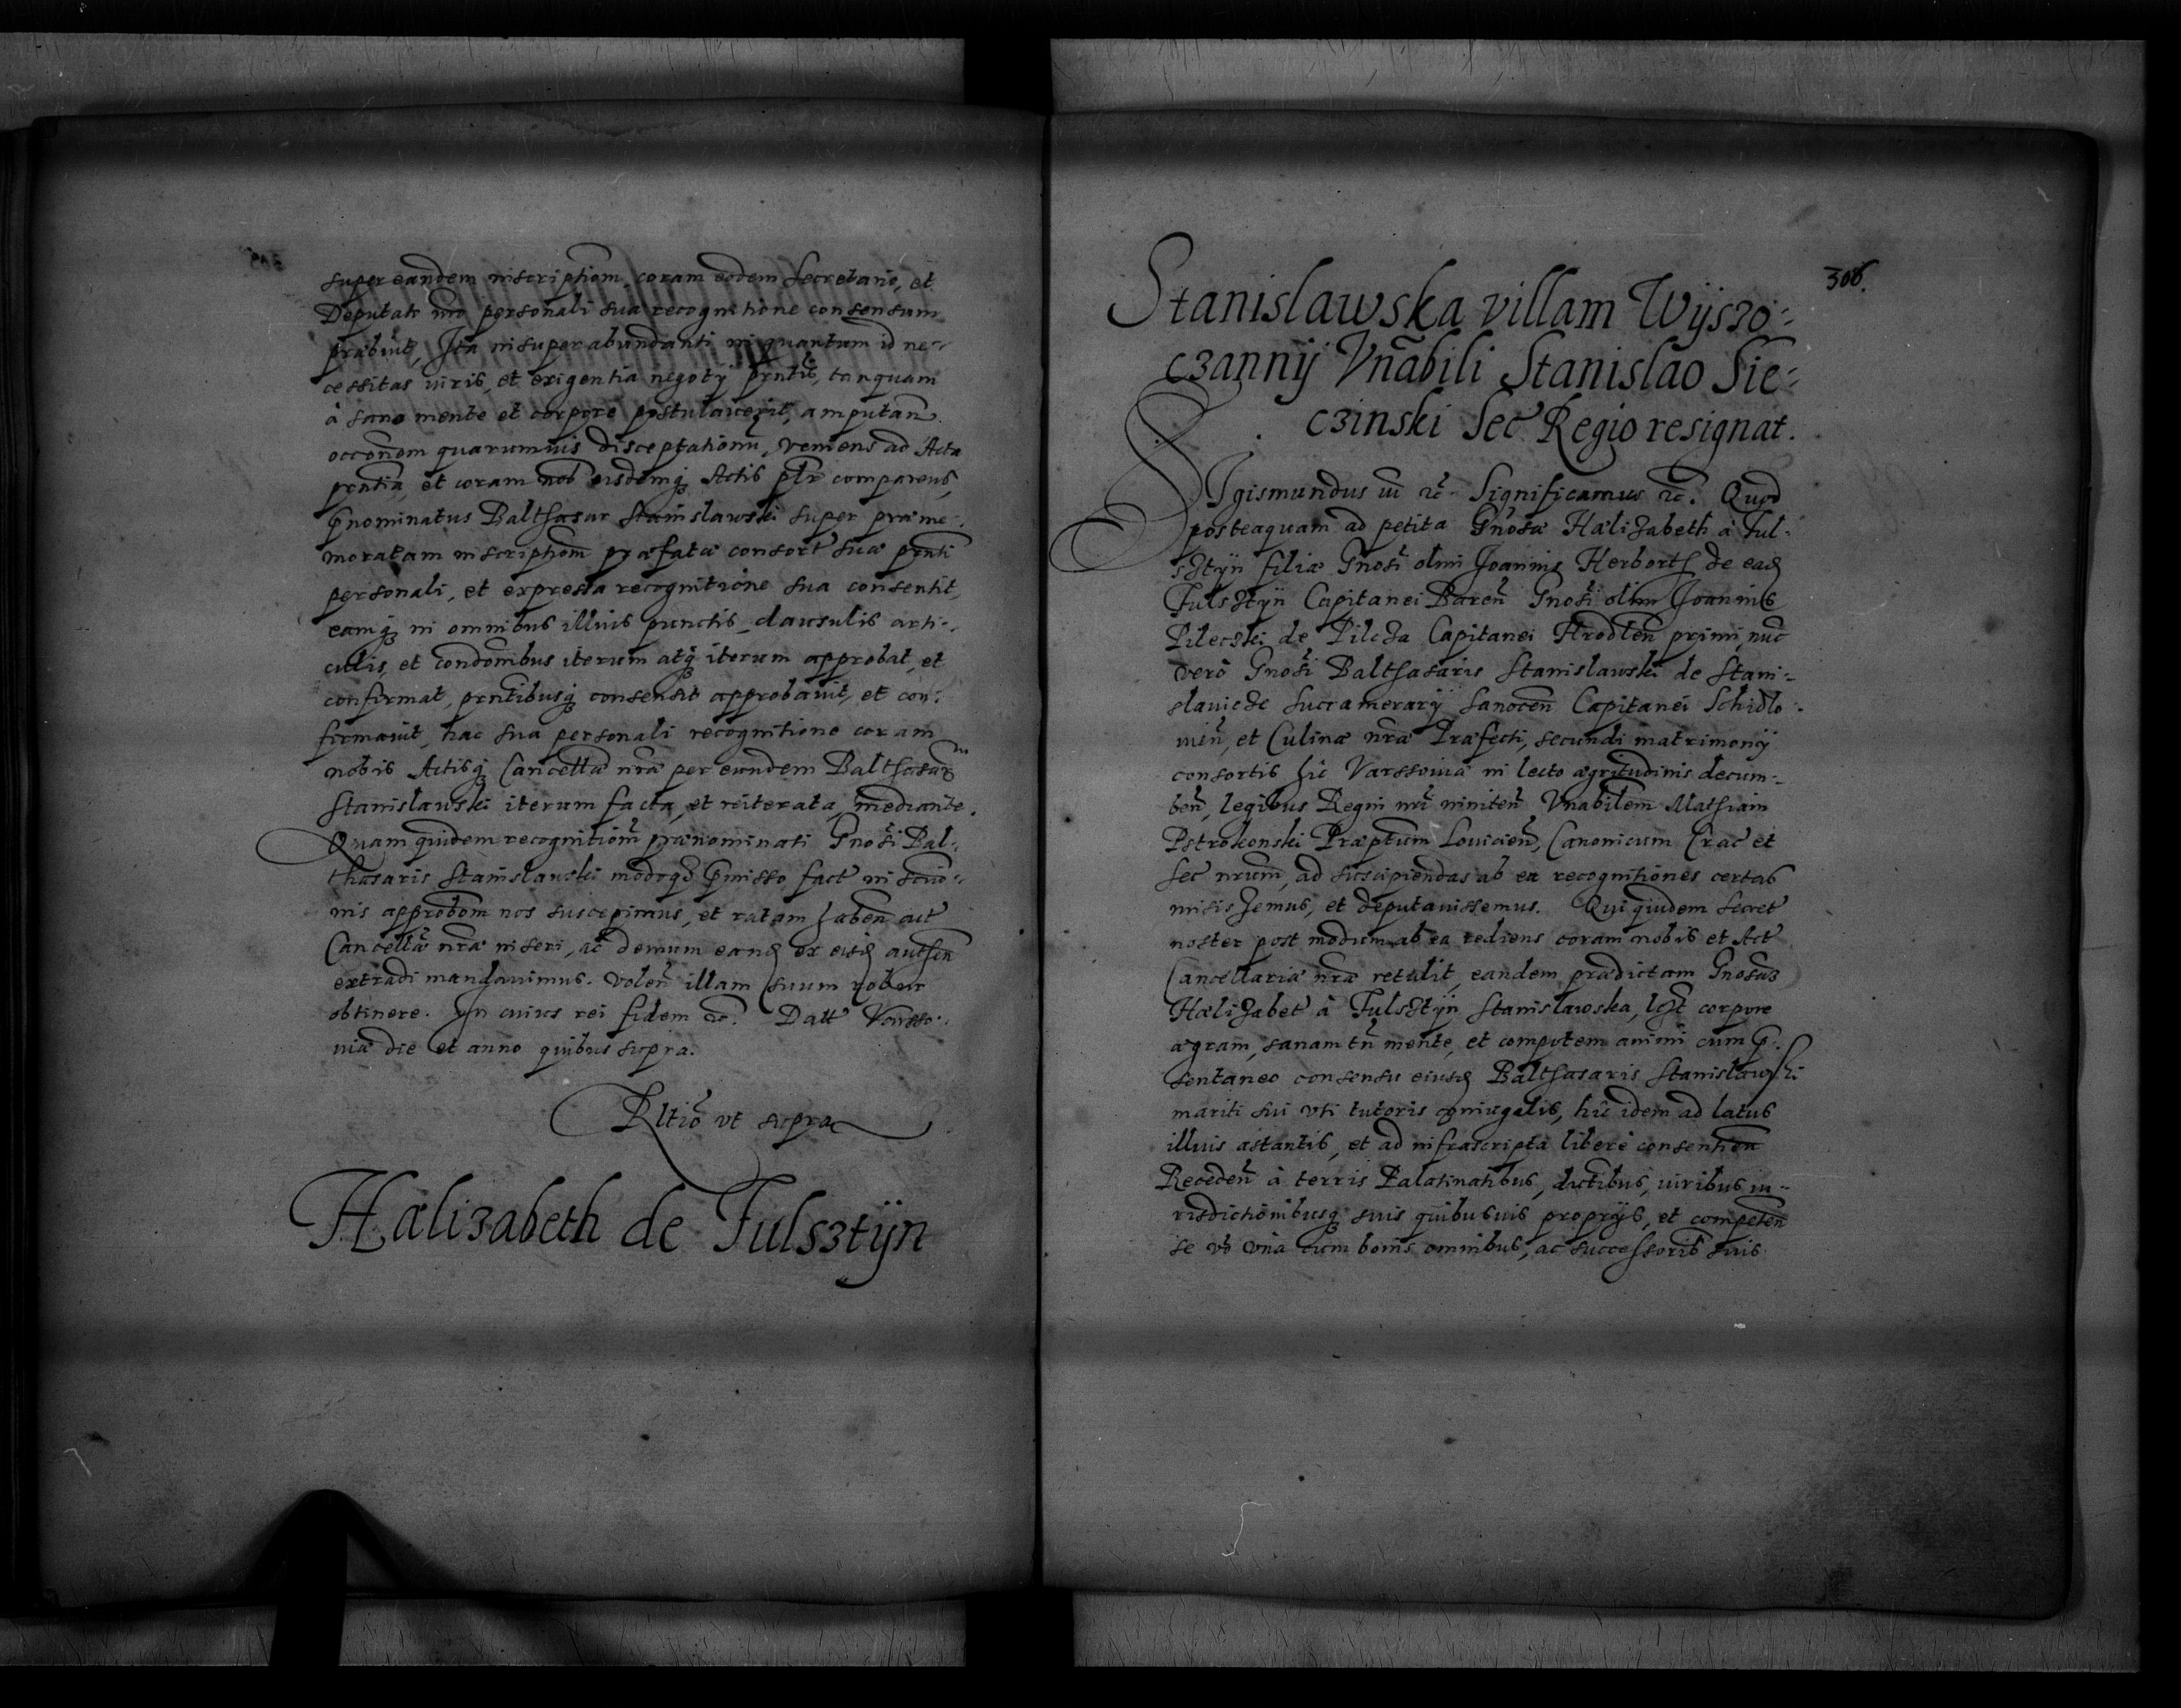 super eandem inscriptiom, coram eodem Secretario, et
Deputato nro personali sua recognitione consensum
præbuit, Ita in superabundanti in quantum id ne-
cessitas iuris, et exigentia negotij pntis, tanquam
à sano mente et corpore postulaverit, amputan
occonem quarumuis disceptationu, veniens ad Acta
prntia, et coram nob eisdemq Actis pltr comparens,
Pnominatus Balthasar Stanislawski super præme-
moratam inscriptiom præfatæ consort suæ prnti
personali, et expressa recognitione sua consentit,
eamq in omnibus illius punctis, clausulis arti-
culis, et condonibus iterum atq iterum approbat, et
confirmat, prntibusq consensit approbauit, et con-
firmauit, hac sua personali recognitione coram
nobis Actisq Cancellæ nræ per eundem Balthasarem
Stanislawski iterum facta, et reiterata, mediante.
Quam quidem recognitiom prænominati Gnosi Bal-
thasaris Stanislawski modoqs Pmisso fact
nis approbom nos suscepimus, et ratam haben act
Cancellæ nræ inseri, ac demum eand ex eisd authen
extradi mandauimus. Volen illam suum robur
obtinere. In cuius rei fidem etc. Datt Varsso-
uiæ die et anno quibus supra.
Rltio vt supra
Hælizabeth de Fulsztijn
306.
Stanislawska villam Wijszo-
czannij Vnabili Stanislao Sie-
czinski Sec Regio resignat.
SIgismundus iii etc. Significamus etc. Quod
posteaquam ad petita Gnosæ Hælizabeth à Ful-
sztijn filiæ Gnosi olim Joannis Herborth de ead
Fulsztijn Capitanei Baren Gnosi olim Joannis
Pileczki de Pilcza Capitanei Hrodlen primi, nuc
vero Gnosi Balthasaris Stanislawski de Stani-
slauicze Succamerarij Sanocen Capitanei Schidlo-
uien, et Culinæ nræ Præfecti, secundi matrimonij
consortis hic Varssouiæ in lecto ægritudinis decum-
ben, legibus Regni nri initen Vnabilem Mathiam
Pstrokonski Præptum Louicien, Canonicum Crac et
Sec nrum, ad suscipiendas ab ea recognitiones certas
misissemus, et deputauissemus. Qui quidem Secret
noster post modum ab ea rediens coram nobis et Act
Cancellariæ nræ retulit, eandem prædictam Gnosam
Hælizabet à Fulsztijn Stanislawska, lczt corpore
ægram, sanam tn mente, et compotem animi cum P-
sentaneo consensu eiusd Balthasaris Stanislawski
mariti sui vti tutoris coniugalis, hic idem ad latus
illius astantis, et ad infrascripta libere consentien
Receden à terris Palatinatibus, dictibus, iuribus iu-
risdictionibusq suis quibusuis proprijs, et competen
se vo vna cum bonis omnibus, ac successoribs suis